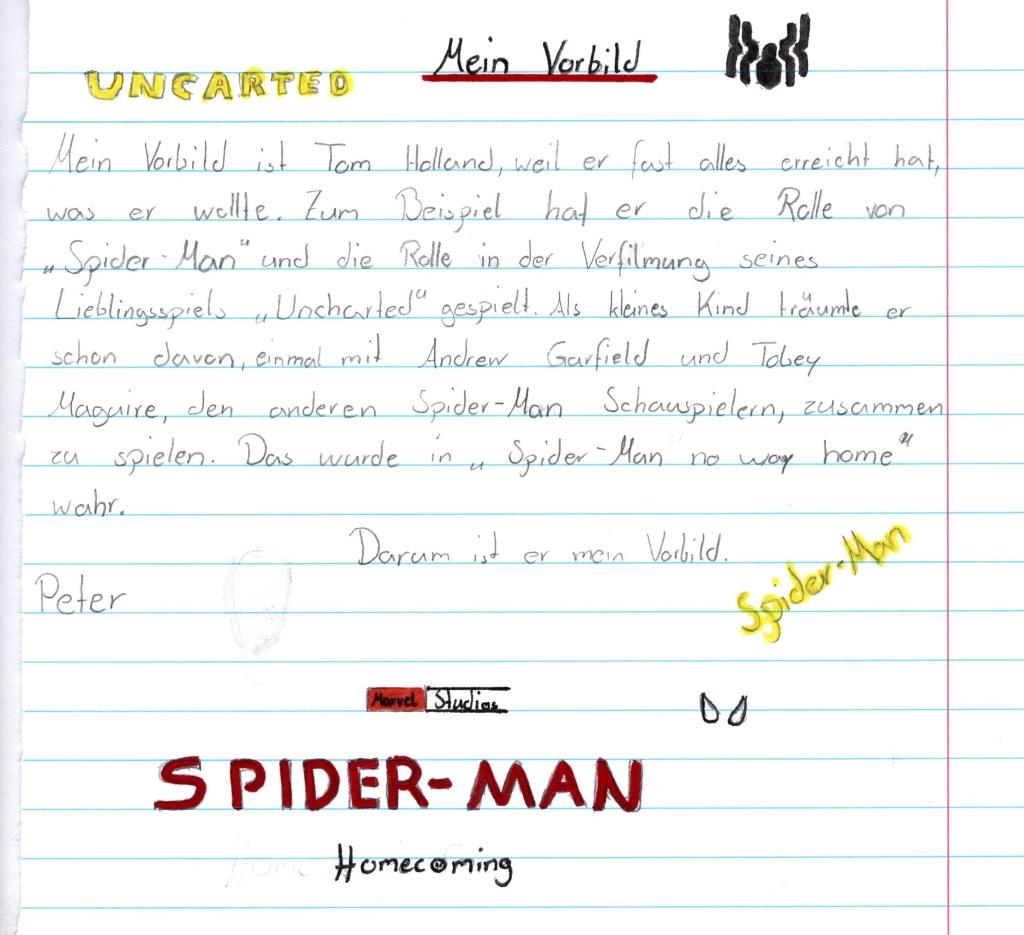 Mein Vorbild
UNCARTED
Mein Vorbild ist Tom Holland, weil er fast alles erreicht hat,
was er wollte. Zum Beispiel hat er die Rolle von
„Spider-Man“ und die Rolle in der Verfilmung seines
Lieblingsspiels „Uncharted“ gespielt. Als kleines Kind träumte er
schon davon, einmal mit Andrew Garfield und Tobey
Maguire, den anderen Spider-Man Schauspielern, zusammen
zu spielen. Das wurde in „Spider-Man no way home“
wahr.
Darum ist er mein Vorbild.
Peter
Spider-Man
Marvel Studios
SPIDER-MAN
Homecoming